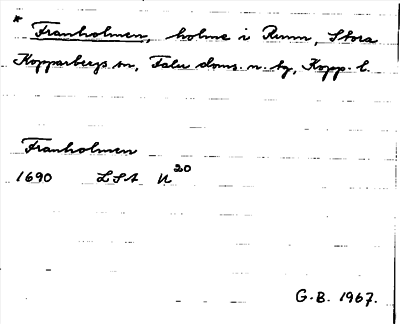 * Franholmen, holme i Runn, Stora
Kopparbergs sn, Falu doms. n. tg, Kopp. l.
Franholmen
1690 LSA N 20
G.B. 1967.